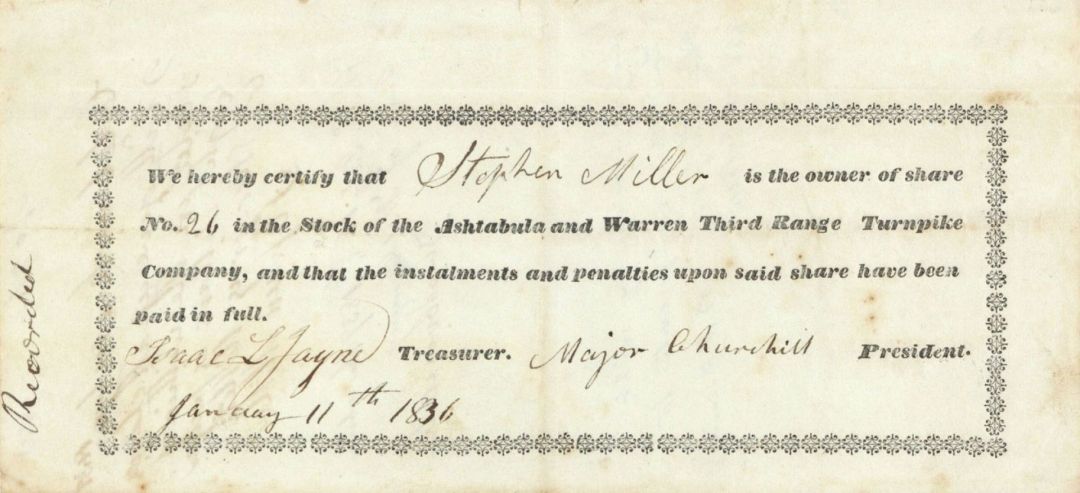 We hereby certify that Stephen Miller is the owner of share
No. 26 in the Stock of the Ashtabula and Warren Third Range Turnpike
Company, and that the instalments and penalties upon said share have been
paid in full.
Isaac L Jayne Treasurer. Major Churchill President.
January 11th 1836
Recorded